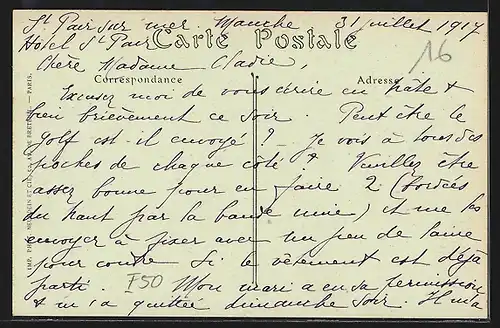 St Pair sur mer Manche 31 juillet 1917
Hôtel St Pair
Carte Postale
16
Chère Madame Cladie,
Correspondance
Adresse
Excusez moi de vous écrire en hâte &
bien brièvement ce soir. Peut être le
golf est-il envoyé? Je vois à tous des
poches de chaque côté & Veuillez être
assez bonne pour en faire 2 (bordées
du haut par la bande unie) et me les
envoyer à fixer avec un peu de laine
pour coudre Si le vêtement est déjà
parti. Mon mari a eu sa permission
& m'a quittée dimanche soir. Il m'a
F50